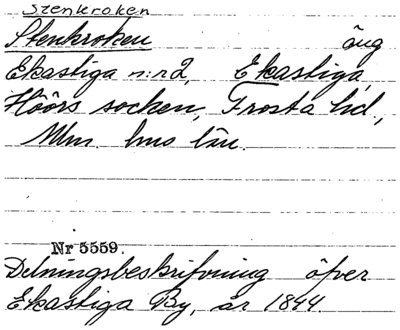 Stenkroken
Stenkroken äng
Ekastiga n:r 2, Ekastiga,
Höörs socken, Frosta hd,
Mlm hus län.
Nr 5559.
Delningsbeskrifvning öfver
Ekastiga By, år 1844.